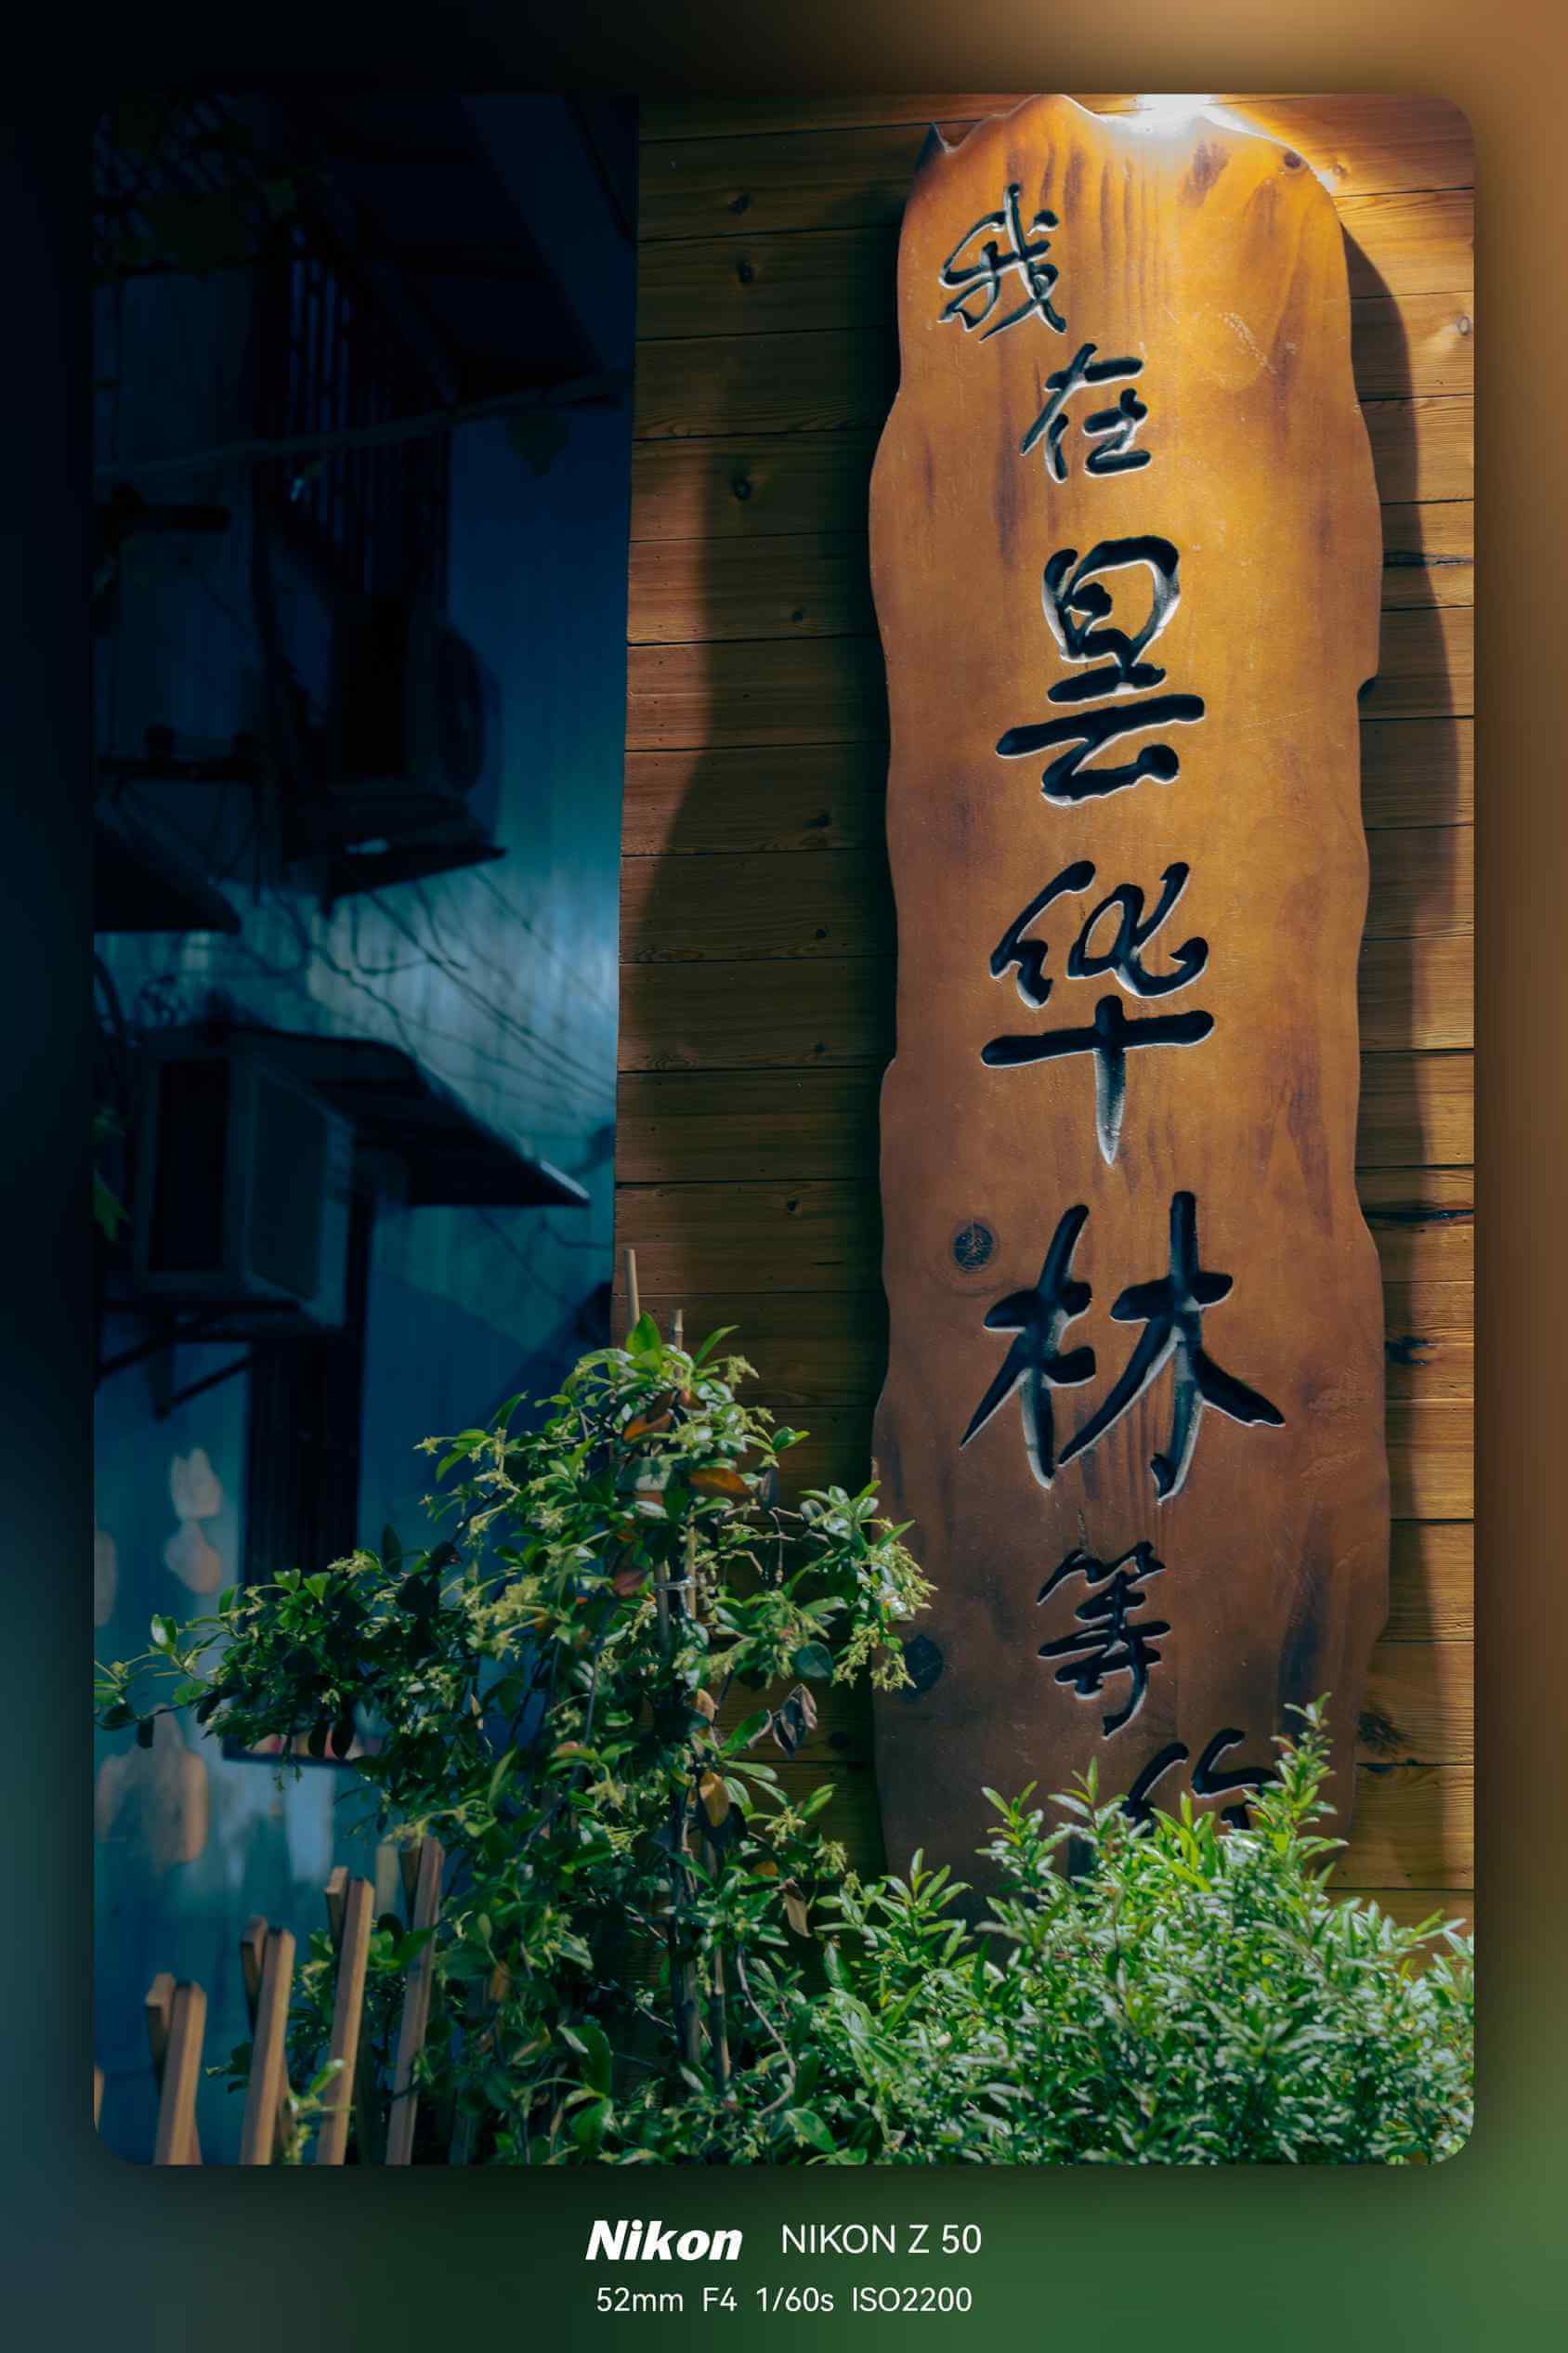 我在昙华林等你
Nikon NIKON Z 50
52mm F4 1/60s ISO2200